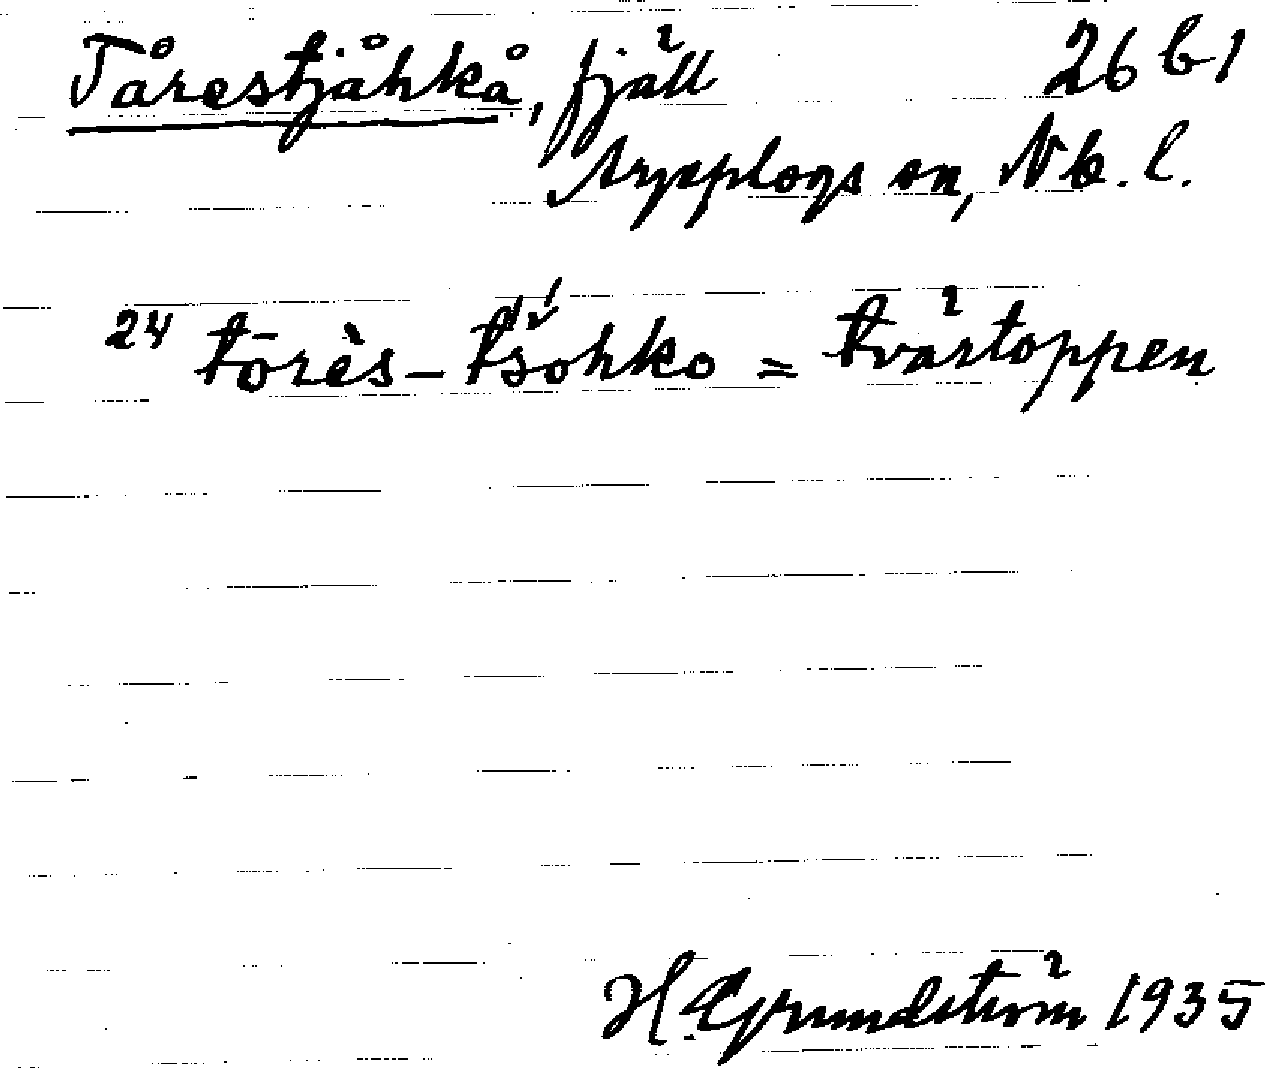 Tårestjåhkå, fjäll 26 b 1
Arjeplogs sn, Nb. l.
24 tōrès-tšóhko = tvärtoppen
H. Grundström 1935